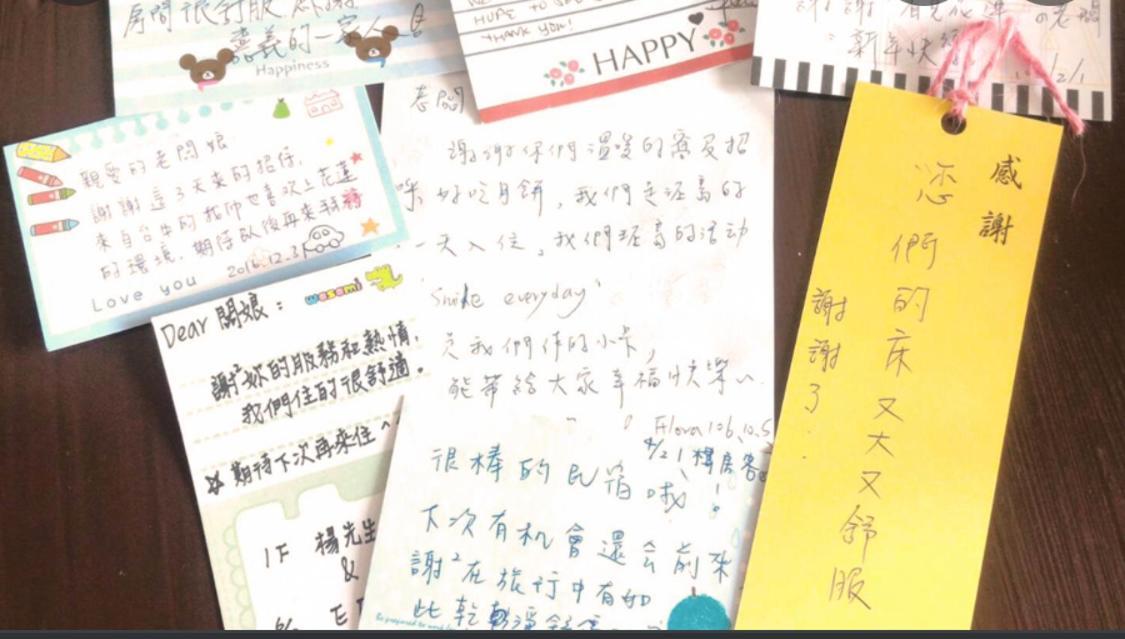 房間很舒服
嘉義的一家人
Happiness
HOPE TO SEE
THANK YOU!
HAPPY
新年快
親愛的老闆娘
謝謝這3天來的招待,
來自台中的 也喜歡上花蓮
的環境.期待以後再來
2016.12.31
Love you
wasami
Dear 闆娘:
謝²妳的服務和熱情,
我們住的很舒適。
期待下次再來住^^
1F 楊先生
&
老闆
謝謝你們溫暖的 招
呼 好吃月餅,我們是 的
一天入住,我們 的活動
"Smile everyday"
我們作的小卡,
能帶給大家幸福快樂^^
Flora 106.10.5
4/21 樓房客
很棒的民宿哦!
下次有机會還会前來
謝²在旅行中有如
此乾
感謝
您們的床又大又舒服
謝謝了